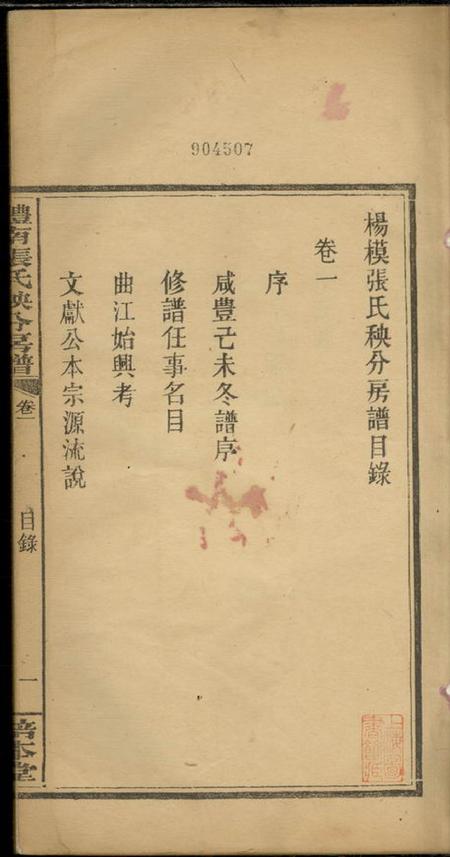 904507
楊模張氏秧分房譜目錄
卷一
序
咸豐己未冬譜序
修譜任事名目
曲江始興考
文獻公本宗源流說
醴南張氏秧分房譜
卷一
目錄
一
培本堂